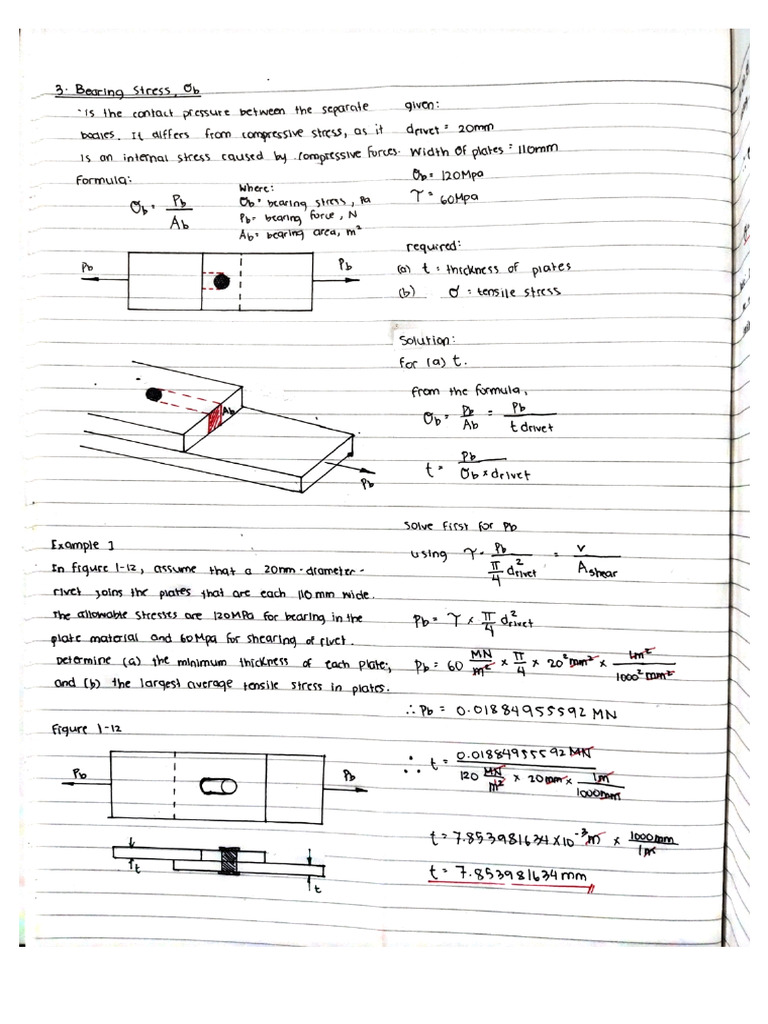 3. Bearing Stress, σb
- is the contact pressure between the separate
bodies. It differs from compressive stress, as it
is an internal stress caused by compressive forces.
Formula:
σb = Pb / Ab
Where:
σb = bearing stress, Pa
Pb = bearing force, N
Ab = bearing area, m²
Pb
Pb
Ab
Pb
Example 1
In figure 1-12, assume that a 20mm-diameter-
rivet joins the plates that are each 110 mm wide.
The allowable stresses are 120MPa for bearing in the
plate material and 60Mpa for shearing of rivet.
Determine (a) the minimum thickness of each plate;
and (b) the largest average tensile stress in plates.
Figure 1-12
Pb
Pb
t
t
given:
drivet = 20mm
Width of plates = 110mm
σb = 120Mpa
τ = 60Mpa
required:
(a) t = thickness of plates
(b) σ = tensile stress
Solution:
for (a) t.
from the formula,
σb = Pb / Ab = Pb / t drivet
t = Pb / σb × drivet
Solve First for Pb
using τ = Pb / π/4 d²rivet = V / Ashear
Pb = τ × π/4 d²rivet
Pb = 60 MN/m² × π/4 × 20² mm² × 1m² / 1000² mm²
∴ Pb = 0.01884955592 MN
∴ t = 0.01884955592 MN / 120 MN/m² × 20mm × 1m / 1000mm
t = 7.853981634 × 10⁻³ m × 1000mm / 1m
t = 7.853981634 mm